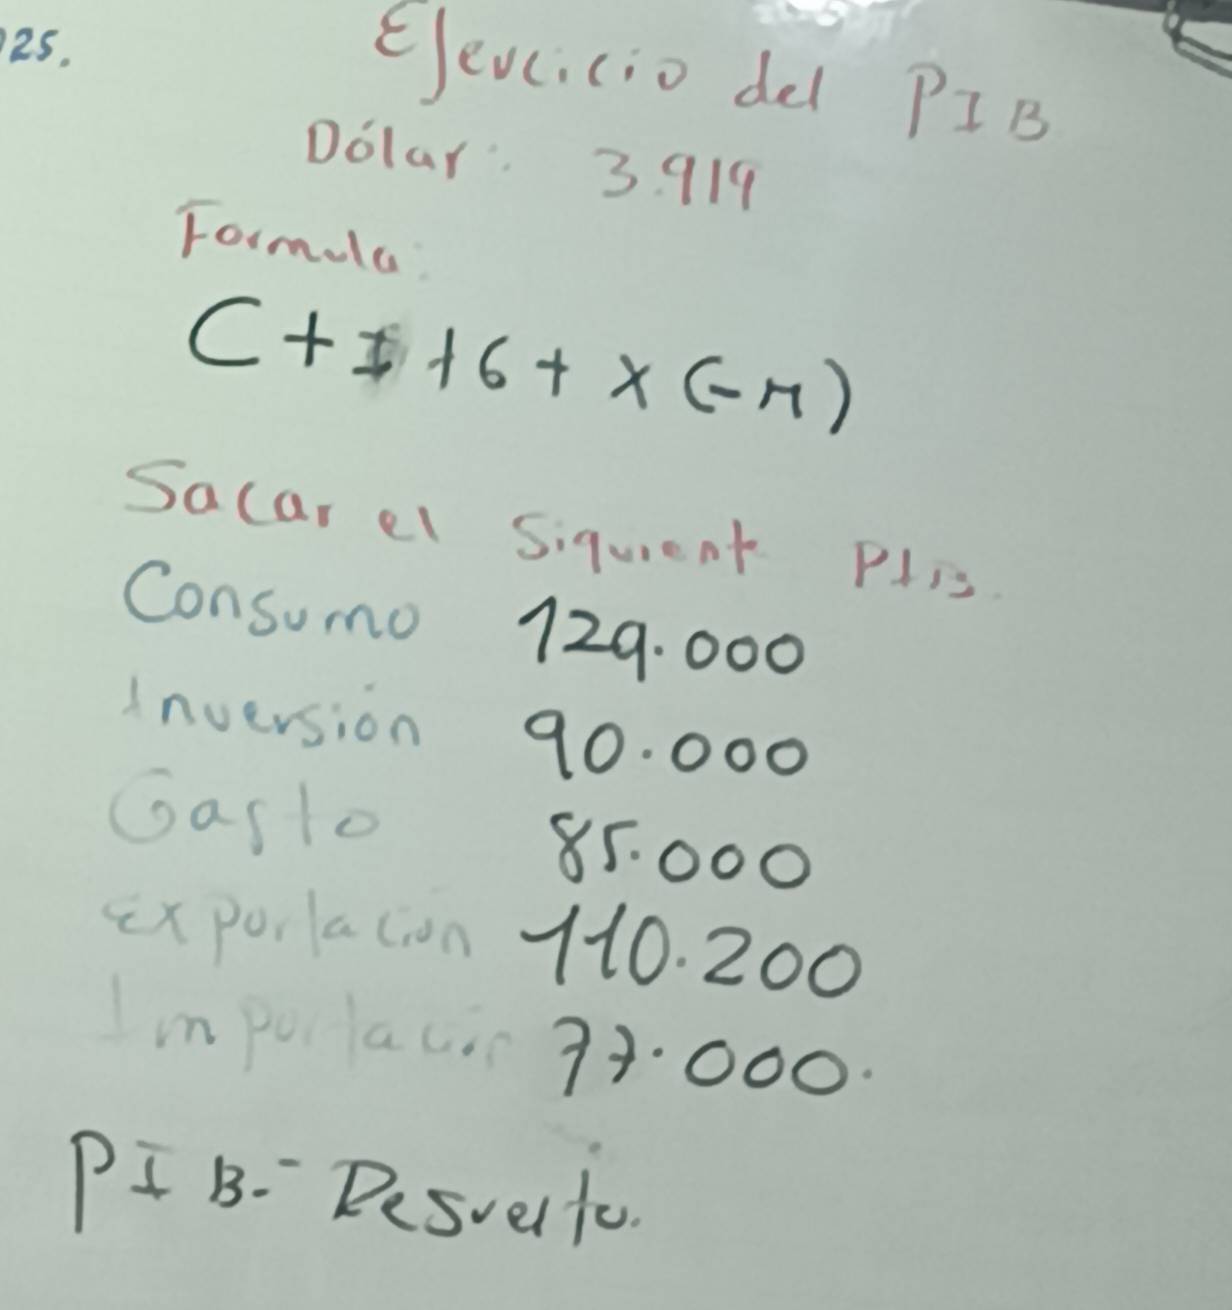 025.
Ejercicio del PIB
Dólar: 3.919
Formula:
C + I + G + X (-M)
Sacar el Siquient PIB.
Consumo 129.000
Inversión 90.000
Gasto 85.000
Exportación 110.200
Importación 77.000.
PIB.- Resuelto.